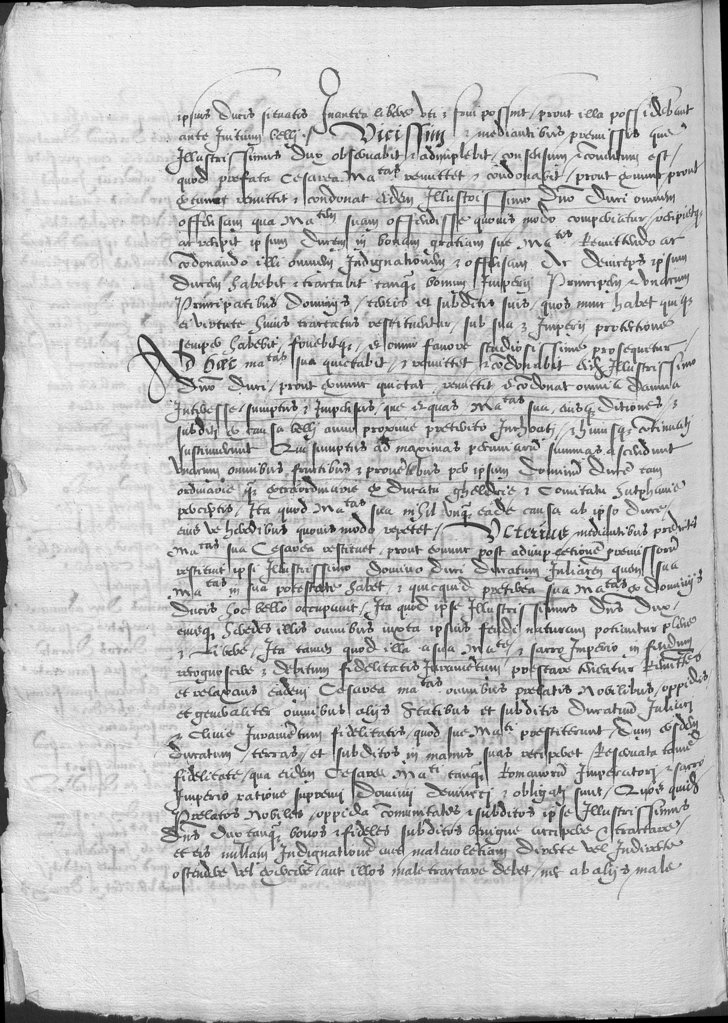 ipsius ducis situatis Inantea libere vti & frui possint / prout illa possidebant
ante Initium belli / Vicissim & mediantibus premissis que
Illustrissimus Dux obseruabit & adimplebit / consensum & conuentum est /
quod prefata Cesarea Matas remittet & condonabit / prout exnunc prout
extunc remittit & condonat eidem Illustrissimo Dno Duci omnem
offensam qua Matem suam offendisse quouis modo comperiatur / recipietq
ac recipit ipsum Ducem in bonam gratiam sue Matis Remittendo ac
condonando illi omnem Indignationem & offensam Ac deinceps ipsum
Ducem habebit & tractabit tanq bonum Imperij Principem & vnacum
Principatibus Dominijs / terris et subditis suis, quos nunc habet quiq
ei virtute huius tractatus restituentur, sub sua & Imperij protectione
semper habebit, fouebitq, et omni fauore studiosissime prosequetur /
Ad hec matas sua quictabit / & remittet & condonabit eidem Illustrissimo
Dno Duci / prout exnunc quictat, remittit & condonat omnia damna
Interesse / sumptus & Impensas, que et quas Matas sua, eiusq ditiones, &
subditi ex causa belli anno proxime preterito Inchoati, & hinusq continuati
sustinuerunt Qui sumptus ad maximas pecuniarum summas ascendunt
vnacum omnibus fructibus & prouentibus per ipsum Dominum Ducem tam
ordinarie q extraordinarie ex Ducatu gheldrie & Comitatu Zutphanie
perceptis / Ita quod Matas sua nihil vnq eade causa ab ipso Duce /
eius ve heredibus quouis modo repetet / Vlterius mediantibus predictis
Matas sua Cesarea restituet / prout exnunc post adimpletionem premissorum
restituit ipsi Illustrissimo Domino duci Ducatum Juliacen quem sua
Matas in sua potestate habet / & quicquid preterea sua Matas ex dominijs
Ducis hoc bello occupauit / Ita quod ipse Illustrissimus Dns Dux /
eiusq heredes illos omnibus iuxta ipsius feudi naturam potiantur plene
& Libere / Ita tamen quod illa a sua Mate / & sacro Imperio in feudum
recognoscere & debitum fidelitatis Iuramentum / prestare teneatur Remittens
et relaxans eadem Cesarea matas omnibus prelatis Nobilibus / oppidis
et generaliter omnibus alijs Statibus et subditis Ducatuum Juliacen
& Cliuie Iuramentum fidelitatis / quod sue Mati prestiterunt / dum eosdem
Ducatum / terras / et subditos in manus suas reciperet Reseruata tamen
fidelitate / qua eidem Cesaree Mati tanq Romanorum Imperatori / & sacro
Imperio ratione supremi Dominij deuincti & obligati sunt / Quos quidem
Prelatos Nobiles / oppida communitates & subditos ipse Illustrissimus
Dns Dux tanq bonos & fideles subditos benigne accipere & tractare /
et eis nullam Indignationem aut maleuolentiam directe vel Indirecte
ostendere vel exercere / aut illos male tractare debet / nec ab alijs male